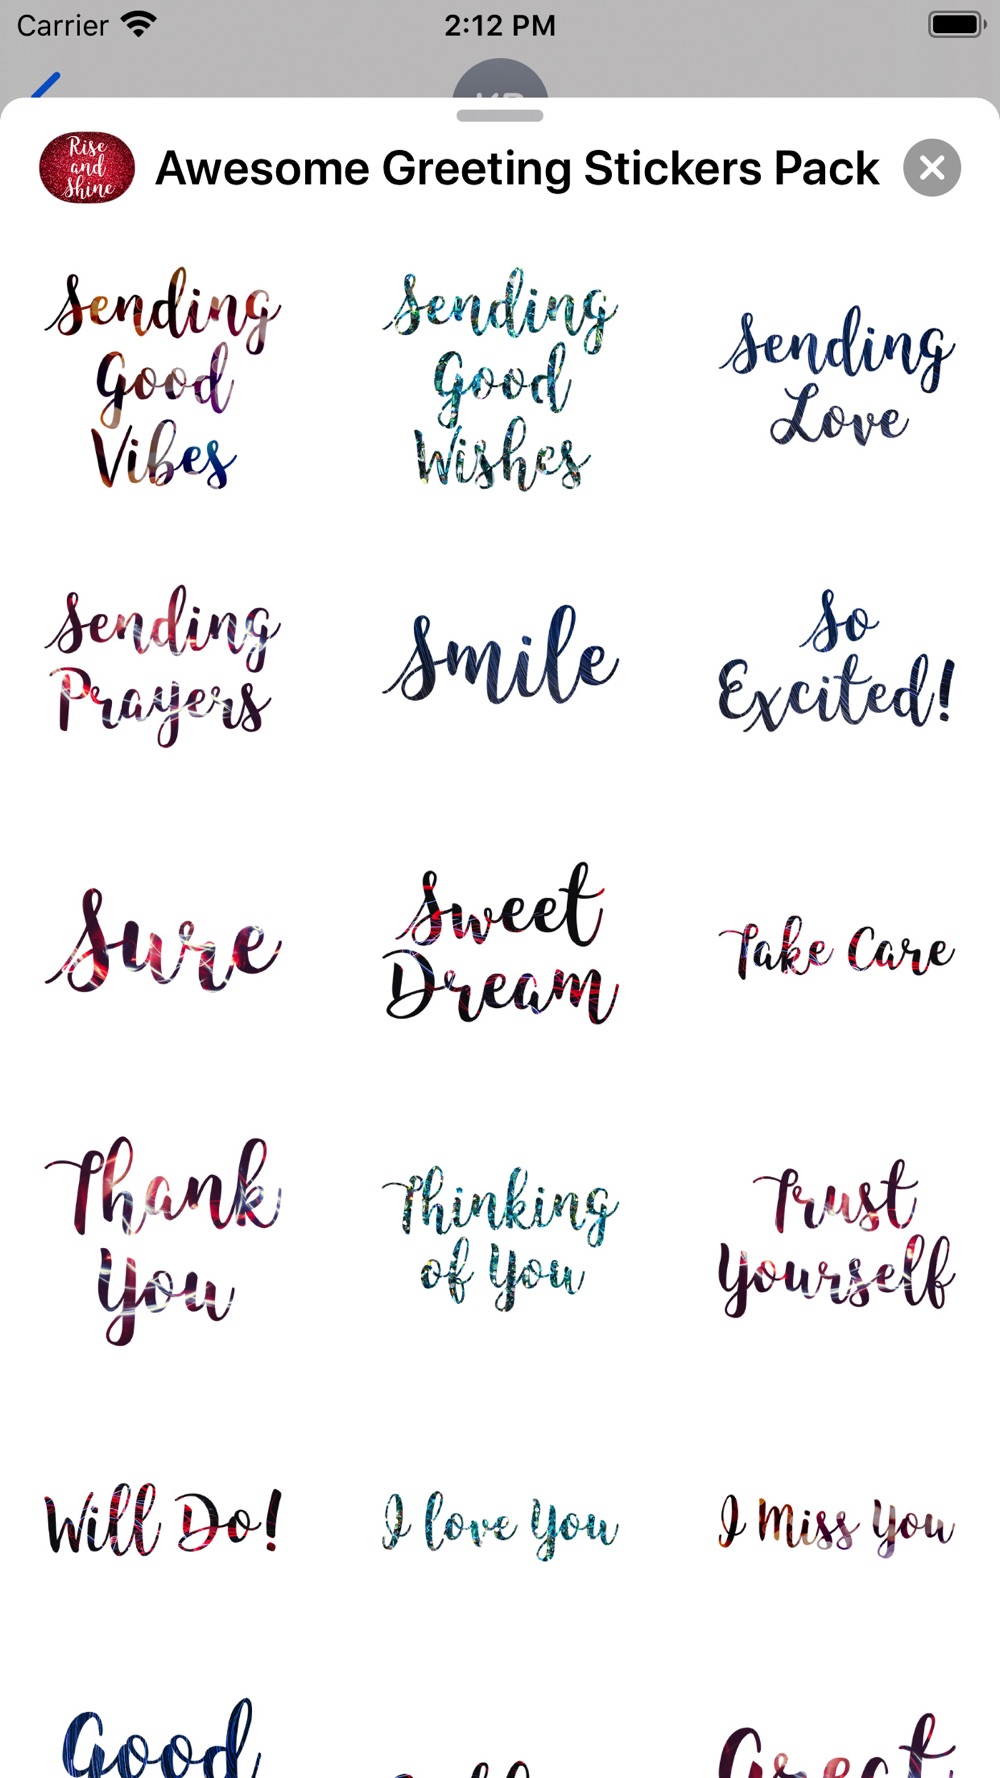 Carrier 2:12 PM
Rise
and
Shine
Awesome Greeting Stickers Pack
Sending
Good
Vibes
Sending
Good
Wishes
Sending
Love
Sending
Prayers
Smile
So
Excited!
Sure
Sweet
Dream
Take Care
Thank
You
Thinking
of You
Trust
Yourself
Will Do!
I love You
I Miss You
Good
Great